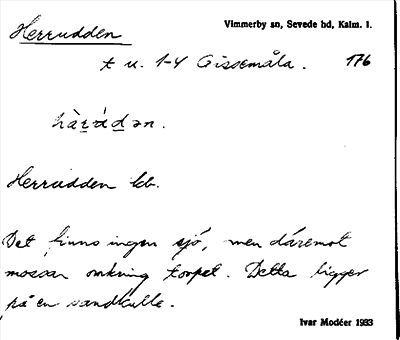 Herrudden
Vimmerby sn, Sevede hd, Kalm. l.
t u. 1-4 Gissemåla. 176
hàr̲ád̲ən.
Herrudden kb.
Det finns ingen sjö, men däremot
mossar omkring torpet. Detta ligger
på en sandkulle.
Ivar Modéer 1933